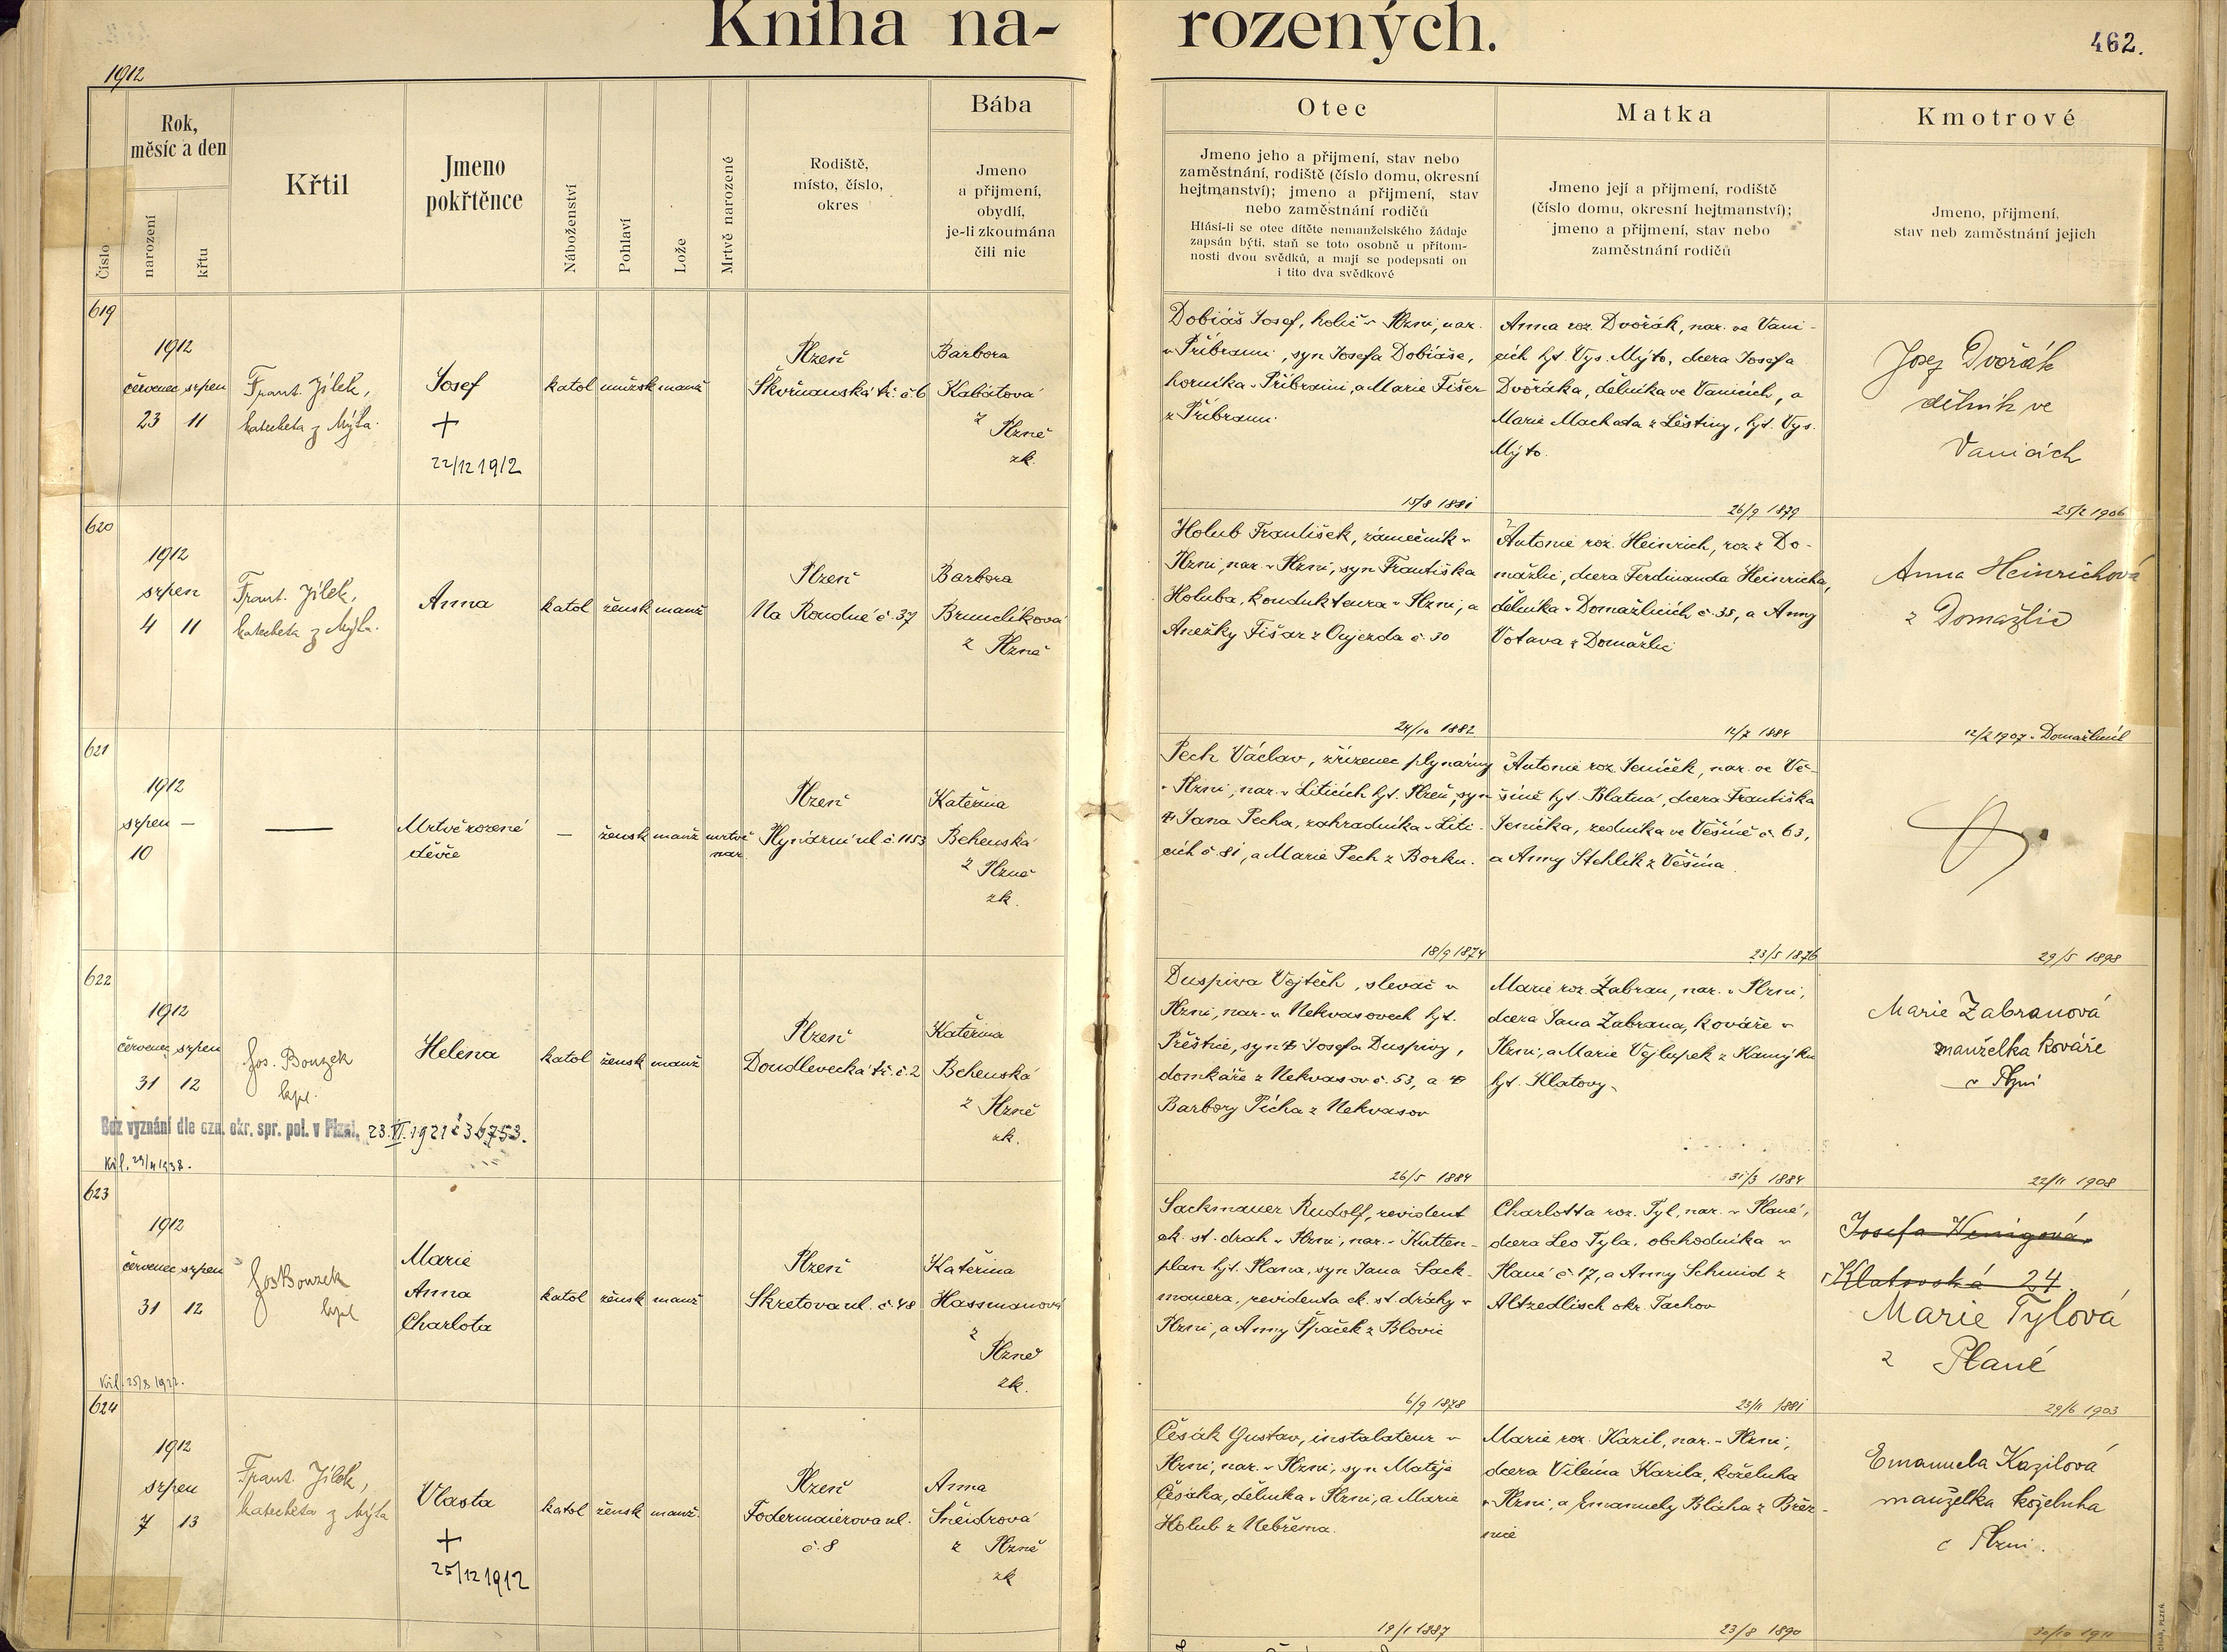 Kniha na-
rozených.
462.
1912
Číslo
Rok,
měsíc a den
narození
křtu
Křtil
Jmeno
pokřtěnce
Náboženství
Pohlaví
Lože
Mrtvě narozené
Rodiště,
místo, číslo,
okres
Bába
Jmeno
a přijmení,
obydlí,
je-li zkoumána
čili nic
Otec
Jmeno jeho a přijmení, stav nebo
zaměstnání, rodiště (číslo domu, okresní
hejtmanství); jmeno a přijmení, stav
nebo zaměstnání rodičů
Hlásí-li se otec dítěte nemanželského žádaje
zapsán býti, staň se toto osobně u přítom-
nosti dvou svědků, a mají se podepsati on
i tito dva svědkové
Matka
Jmeno její a přijmení, rodiště
(číslo domu, okresní hejtmanství);
jmeno a přijmení, stav nebo
zaměstnání rodičů
Kmotrové
Jmeno, přijmení,
stav neb zaměstnání jejich
619
1912
červenec srpen
23 11
Frant. Jílek,
katecheta z Mýta.
Josef
+
22/12 1912
katol mužsk manž
Plzeň
Škvrňanská tř. č. 6
Barbora
Kabátová
z Plzně
zk.
Dobiáš Josef, holič v Plzni, nar.
v Příbrami, syn Josefa Dobiáše,
horníka v Příbrami, a Marie Fišer
z Příbrami
15/8 1881
Anna roz. Dvořák, nar. ve Vani-
cích hjt. Vys. Mýto, dcera Josefa
Dvořáka, dělníka ve Vanicích, a
Marie Machata z Lěštiny, hjt. Vys.
Mýto.
26/9 1879
Josef Dvořák
dělník ve
Vanicích
25/2 1906
620
1912
srpen
4 11
Frant. Jílek,
katecheta z Mýta.
Anna
katol žensk manž
Plzeň
Na Roudné č. 37
Barbora
Brundlíková
z Plzně
Holub František, zámečník v
Plzni, nar. v Plzni, syn Františka
Holuba, kondukteura v Plzni, a
Anežky Fišar z Oujezda č. 30
24/10 1882
Antonie roz. Heinrich, roz. z Do-
mažlic, dcera Ferdinanda Heinricha,
dělníka v Domažlicích č. 35, a Anny
Votava z Domažlic
12/7 1884
Anna Heinrichová
z Domažlic
12/2 1907 v Domažlicích
621
1912
srpen —
10
—
Mrtvě rozené
děvče
— žensk manž mrtvě
nar.
Plzeň
Plynární ul č. 1153
Kateřina
Behenská
z Plzně
zk.
Pech Václav, zřízenec plynárny
v Plzni, nar. v Liticích hjt. Plzeň, syn
Jana Pecha, zahradníka v Liti-
cích č. 81, a Marie Pech z Borku.
18/9 1874
Antonie roz. Jeníček, nar. ve Vě-
šíně hjt. Blatná, dcera Františka
Jeníčka, zedníka ve Věšíně č. 63,
a Anny Stehlík z Věšína
23/5 1876
29/5 1898
622
1912
červenec srpen
31 12
Jos. Bouzek
kpl.
Helena
katol žensk manž
Plzeň
Doudlevecká tř. č. 2
Kateřina
Behenská
z Plzně
zk.
Bez vyznání dle ozn. okr. spr. pol. v Plzni, 23. VI. 1921 č 36753.
Duspiva Vojtěch, slevač v
Plzni, nar. v Nekvasovech hjt.
Přeštice, syn Josefa Duspivy,
domkáře z Nekvasov č. 53, a
Barbory Pícha z Nekvasov
26/5 1884
Marie roz. Žabran, nar. v Plzni,
dcera Jana Žabrana, kováře v
Plzni, a Marie Vejlupek z Kamýku
hjt. Klatovy.
31/3 1884
Marie Žabranová
manželka kováře
v Plzni
22/11 1908
623
1912
červenec srpen
31 12
Jos Bouzek
kpl
Marie
Anna
Charlota
katol žensk manž
Plzeň
Skretova ul. č. 48
Kateřina
Hassmanová
z
Plzně
zk.
Sackmauer Rudolf, revident
ck. st. drah v Plzni, nar. v Kutten-
plan hjt. Plana, syn Jana Sack-
mauera, revidenta ck. st. dráhy v
Plzni, a Anny Špaček z Blovic
6/9 1878
Charlotta roz. Tyl, nar. v Plané,
dcera Leo Tyla, obchodníka v
Plané č 17, a Anny Schmid z
Altzedlisch okr. Tachov
23/11 1881
Josefa Wenigová
Klatovská 24.
Marie Tylová
z Plané
29/6 1903
624
1912
srpen
7 13
Frant. Jílek,
katecheta z Mýta
Vlasta
+
25/12 1912
katol žensk manž.
Plzeň
Fodermaierova ul.
č. 8
Anna
Šneidrová
z Plzně
zk
Česák Gustav, instalateur v
Plzni, nar. v Plzni, syn Matěje
Česáka, dělníka v Plzni, a Marie
Holub z Nebřema.
19/1 1887
Marie roz. Kazil, nar. v Plzni,
dcera Viléma Kazila, koželuha
v Plzni, a Emanuely Bláha z Břez-
nice
23/8 1890
Emanuela Kazilová
manželka koželuha
v Plzni.
30/10 1911